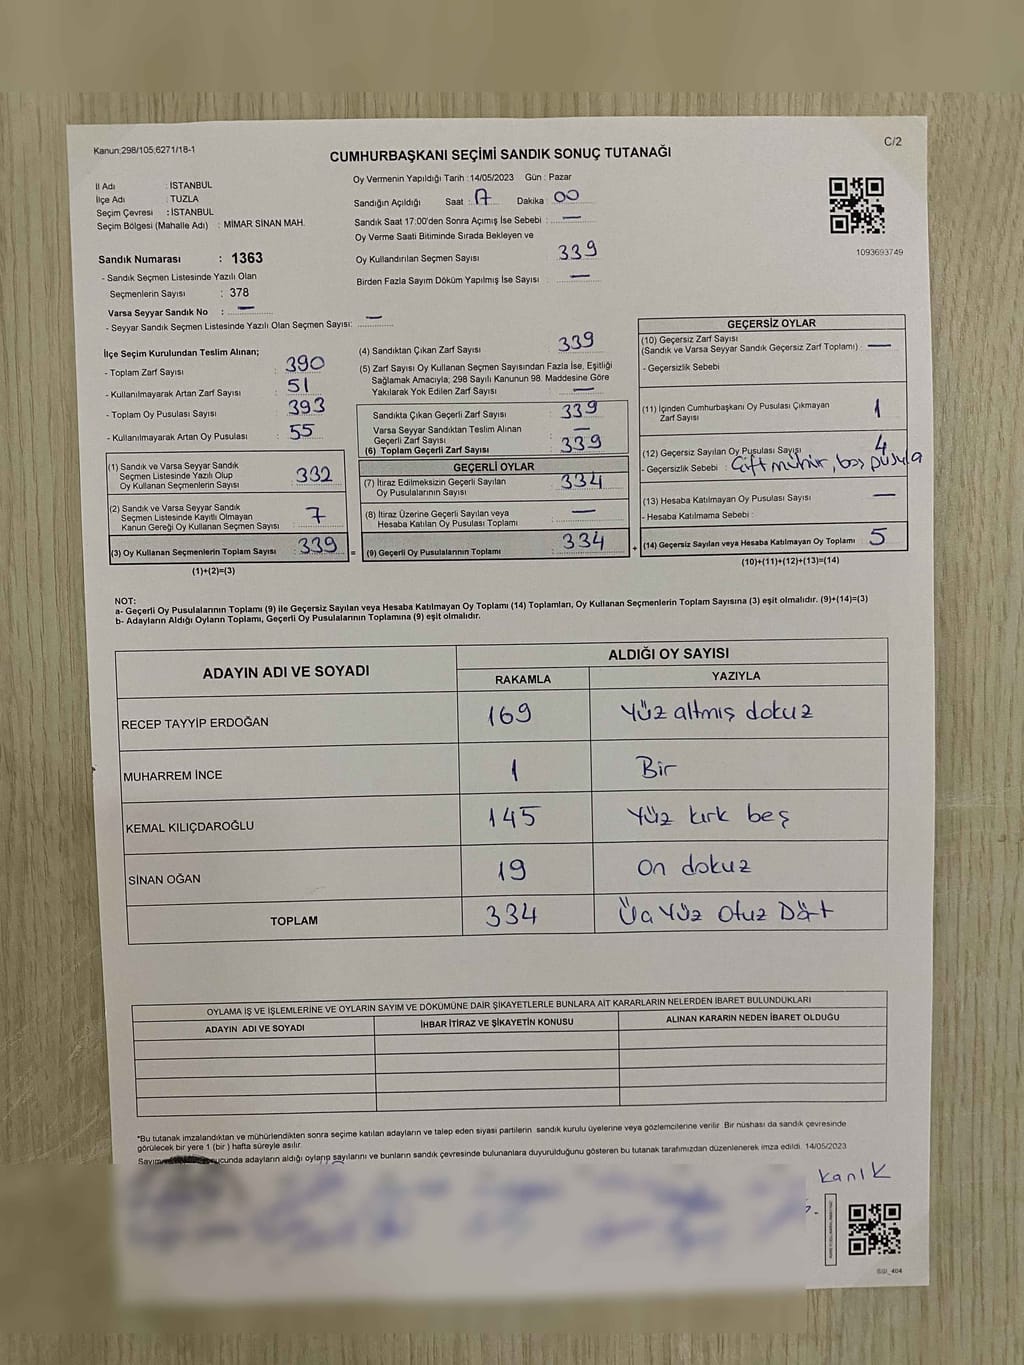 Kanun;298/105;6271/18-1
C/2
CUMHURBAŞKANI SEÇİMİ SANDIK SONUÇ TUTANAĞI
İl Adı : İSTANBUL
İlçe Adı : TUZLA
Seçim Çevresi : İSTANBUL
Seçim Bölgesi (Mahalle Adı) : MİMAR SİNAN MAH.
Sandık Numarası : 1363
- Sandık Seçmen Listesinde Yazılı Olan
Seçmenlerin Sayısı : 378
Varsa Seyyar Sandık No : —
- Seyyar Sandık Seçmen Listesinde Yazılı Olan Seçmen Sayısı: —
Oy Vermenin Yapıldığı Tarih :14/05/2023 Gün : Pazar
Sandığın Açıldığı Saat : 17 Dakika : 00
Sandık Saat 17:00'den Sonra Açımış İse Sebebi : —
Oy Verme Saati Bitiminde Sırada Bekleyen ve
Oy Kullandırılan Seçmen Sayısı : 339
Birden Fazla Sayım Döküm Yapılmış İse Sayısı : —
1093693749
İlçe Seçim Kurulundan Teslim Alınan;
- Toplam Zarf Sayısı : 390
- Kullanılmayarak Artan Zarf Sayısı : 51
- Toplam Oy Pusulası Sayısı : 393
- Kullanılmayarak Artan Oy Pusulası : 55
(1) Sandık ve Varsa Seyyar Sandık
Seçmen Listesinde Yazılı Olup
Oy Kullanan Seçmenlerin Sayısı : 332
(2) Sandık ve Varsa Seyyar Sandık
Seçmen Listesinde Kayıtlı Olmayan
Kanun Gereği Oy Kullanan Seçmen Sayısı : 7
(3) Oy Kullanan Seçmenlerin Toplam Sayısı : 339 =
(1)+(2)=(3)
(4) Sandıktan Çıkan Zarf Sayısı : 339
(5) Zarf Sayısı Oy Kullanan Seçmen Sayısından Fazla İse, Eşitliği
Sağlamak Amacıyla; 298 Sayılı Kanunun 98. Maddesine Göre
Yakılarak Yok Edilen Zarf Sayısı : —
Sandıkta Çıkan Geçerli Zarf Sayısı : 339
Varsa Seyyar Sandıktan Teslim Alınan
Geçerli Zarf Sayısı : —
(6) Toplam Geçerli Zarf Sayısı : 339
GEÇERLİ OYLAR
(7) İtiraz Edilmeksizin Geçerli Sayılan
Oy Pusulalarının Sayısı : 334
(8) İtiraz Üzerine Geçerli Sayılan veya
Hesaba Katılan Oy Pusulası Toplamı : —
(9) Geçerli Oy Pusulalarının Toplamı : 334 +
GEÇERSİZ OYLAR
(10) Geçersiz Zarf Sayısı
(Sandık ve Varsa Seyyar Sandık Geçersiz Zarf Toplamı) : —
- Geçersizlik Sebebi :
(11) İçinden Cumhurbaşkanı Oy Pusulası Çıkmayan
Zarf Sayısı : 1
(12) Geçersiz Sayılan Oy Pusulası Sayısı : 4
- Geçersizlik Sebebi : Çift mühür, boş pusula
(13) Hesaba Katılmayan Oy Pusulası Sayısı : —
- Hesaba Katılmama Sebebi :
(14) Geçersiz Sayılan veya Hesaba Katılmayan Oy Toplamı : 5
(10)+(11)+(12)+(13)=(14)
NOT:
a- Geçerli Oy Pusulalarının Toplamı (9) ile Geçersiz Sayılan veya Hesaba Katılmayan Oy Toplamı (14) Toplamları, Oy Kullanan Seçmenlerin Toplam Sayısına (3) eşit olmalıdır. (9)+(14)=(3)
b- Adayların Aldığı Oyların Toplamı, Geçerli Oy Pusulalarının Toplamına (9) eşit olmalıdır.
ADAYIN ADI VE SOYADI ALDIĞI OY SAYISI
RAKAMLA YAZIYLA
RECEP TAYYİP ERDOĞAN 169 Yüz altmış dokuz
MUHARREM İNCE 1 Bir
KEMAL KILIÇDAROĞLU 145 Yüz kırk beş
SİNAN OĞAN 19 On dokuz
TOPLAM 334 Üç Yüz Otuz Dört
OYLAMA İŞ VE İŞLEMLERİNE VE OYLARIN SAYIM VE DÖKÜMÜNE DAİR ŞİKAYETLERLE BUNLARA AİT KARARLARIN NELERDEN İBARET BULUNDUKLARI
ADAYIN ADI VE SOYADI İHBAR İTİRAZ VE ŞİKAYETİN KONUSU ALINAN KARARIN NEDEN İBARET OLDUĞU
*Bu tutanak imzalandıktan ve mühürlendikten sonra seçime katılan adayların ve talep eden siyasi partilerin sandık kurulu üyelerine veya gözlemcilerine verilir. Bir nüshası da sandık çevresinde
görülecek bir yere 1 (bir) hafta süreyle asılır.
ucunda adayların aldığı oyların sayılarını ve bunların sandık çevresinde bulunanlara duyurulduğunu gösteren bu tutanak tarafımızdan düzenlenerek imza edildi. 14/05/2023
Kanık